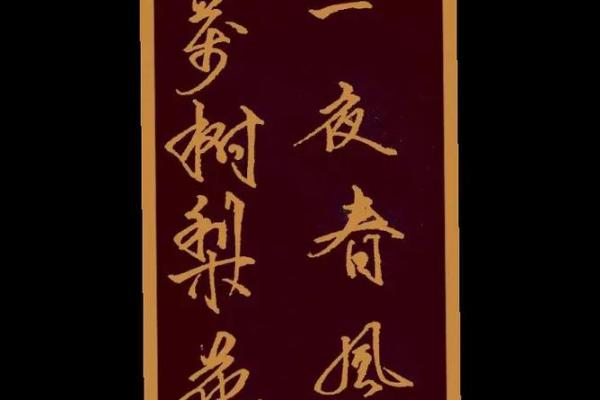 一夜春風
萬树梨花